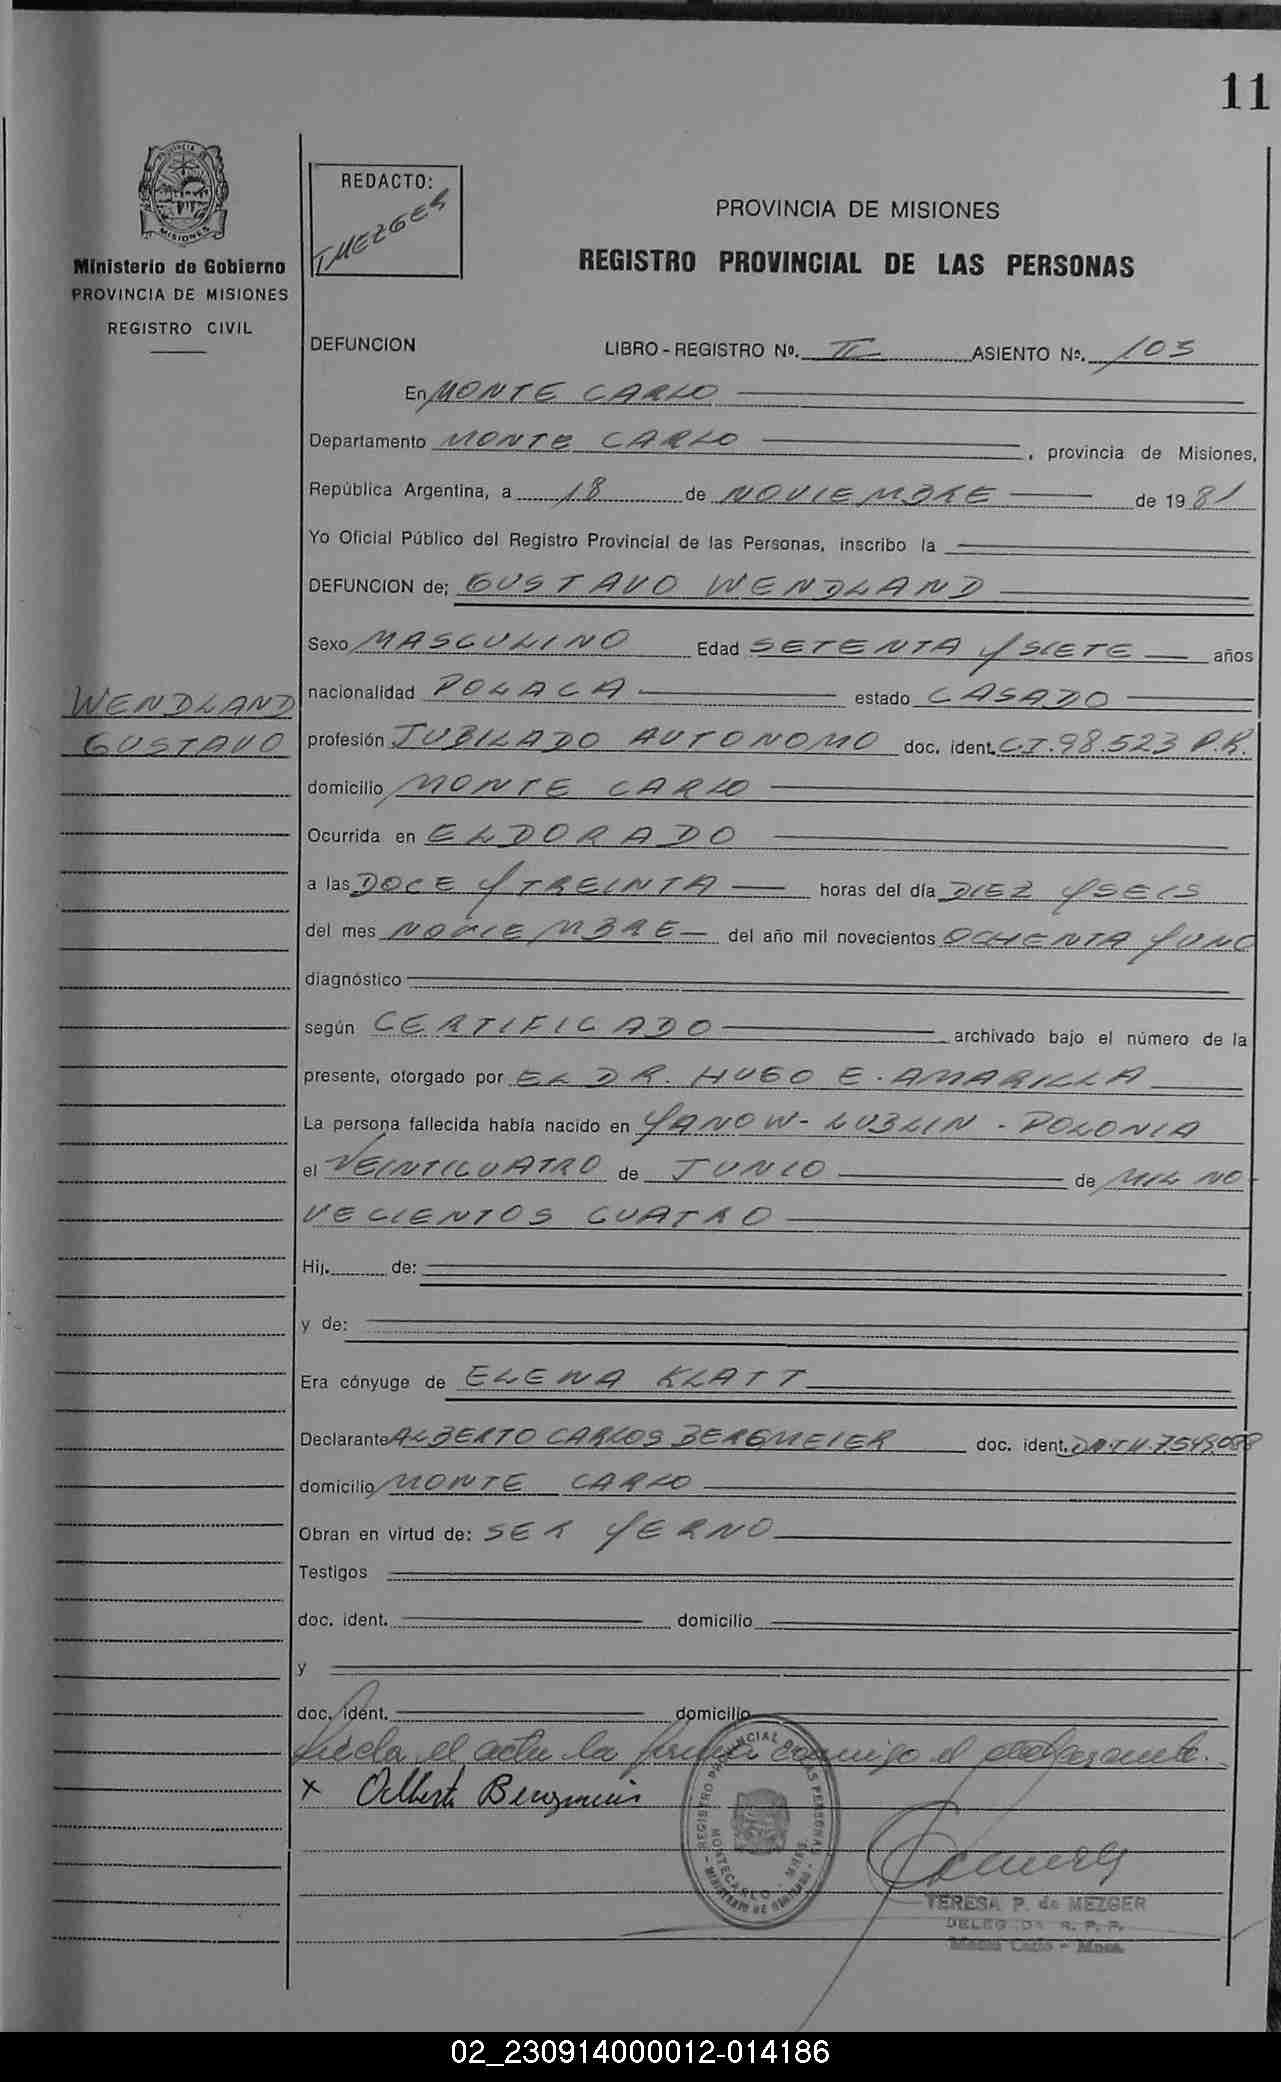 11
PROVINCIA DE
MISIONES
Ministerio de Gobierno
PROVINCIA DE MISIONES
REGISTRO CIVIL
REDACTO:
T MEZGER
PROVINCIA DE MISIONES
REGISTRO PROVINCIAL DE LAS PERSONAS
DEFUNCION LIBRO-REGISTRO Nº. II ASIENTO Nº. 105
En MONTE CARLO
Departamento MONTE CARLO, provincia de Misiones,
República Argentina, a 18 de NOVIEMBRE de 1981
Yo Oficial Público del Registro Provincial de las Personas, inscribo la
DEFUNCION de; GUSTAVO WENDLAND
Sexo MASCULINO Edad SETENTA Y SIETE años
WENDLAND
GUSTAVO
nacionalidad POLACA estado CASADO
profesión JUBILADO AUTONOMO doc. ident. C.I. 98.523 P.R.
domicilio MONTE CARLO
Ocurrida en ELDORADO
a las DOCE Y TREINTA horas del día DIEZ Y SEIS
del mes NOVIEMBRE del año mil novecientos OCHENTA Y UNO
diagnóstico
según CERTIFICADO archivado bajo el número de la
presente, otorgado por EL DR. HUGO E. AMARILLA
La persona fallecida había nacido en YANOW-LUBLIN-POLONIA
el VEINTICUATRO de JUNIO de MIL NO-
VECIENTOS CUATRO
Hij. de:
y de:
Era cónyuge de ELENA KLATT
Declarante ALBERTO CARLOS BERGMEIER doc. ident. 7.549.088
domicilio MONTE CARLO
Obran en virtud de: SER YERNO
Testigos
doc. ident. domicilio
y
doc. ident. domicilio
Leída el acta la firma conmigo el declarante.
x Alberto Bergmeier
REGISTRO PROVINCIAL DE LAS PERSONAS
MONTECARLO - MNES.
MINISTERIO DE GOBIERNO
TERESA P. de MEZGER
DELEG DA R. P. P.
Monte Carlo - Mnes.
02_230914000012-014186